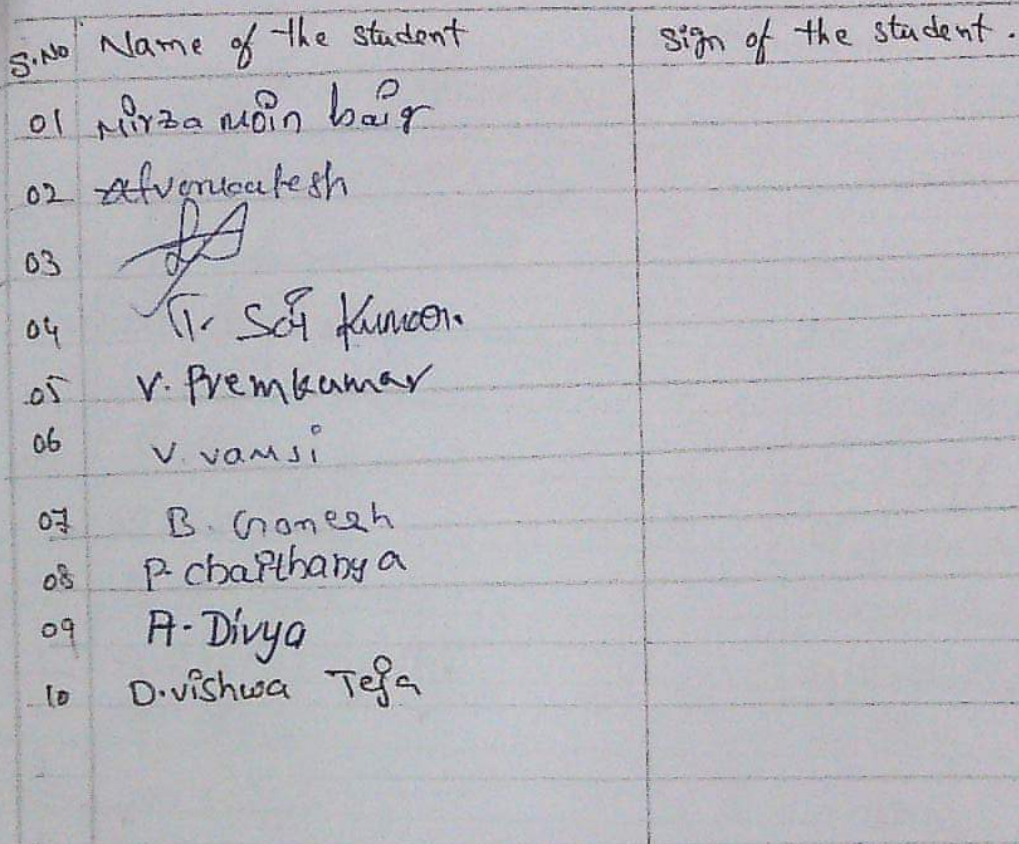 S.No Name of the student Sign of the student.
01 Mirza Moin baig
02
03
04 T. Sai Kumar.
05 V. Premkumar
06 V. vamsi
07 B. Ganesh
08 P. chaithanya
09 A. Divya
10 D. vishwa Teja